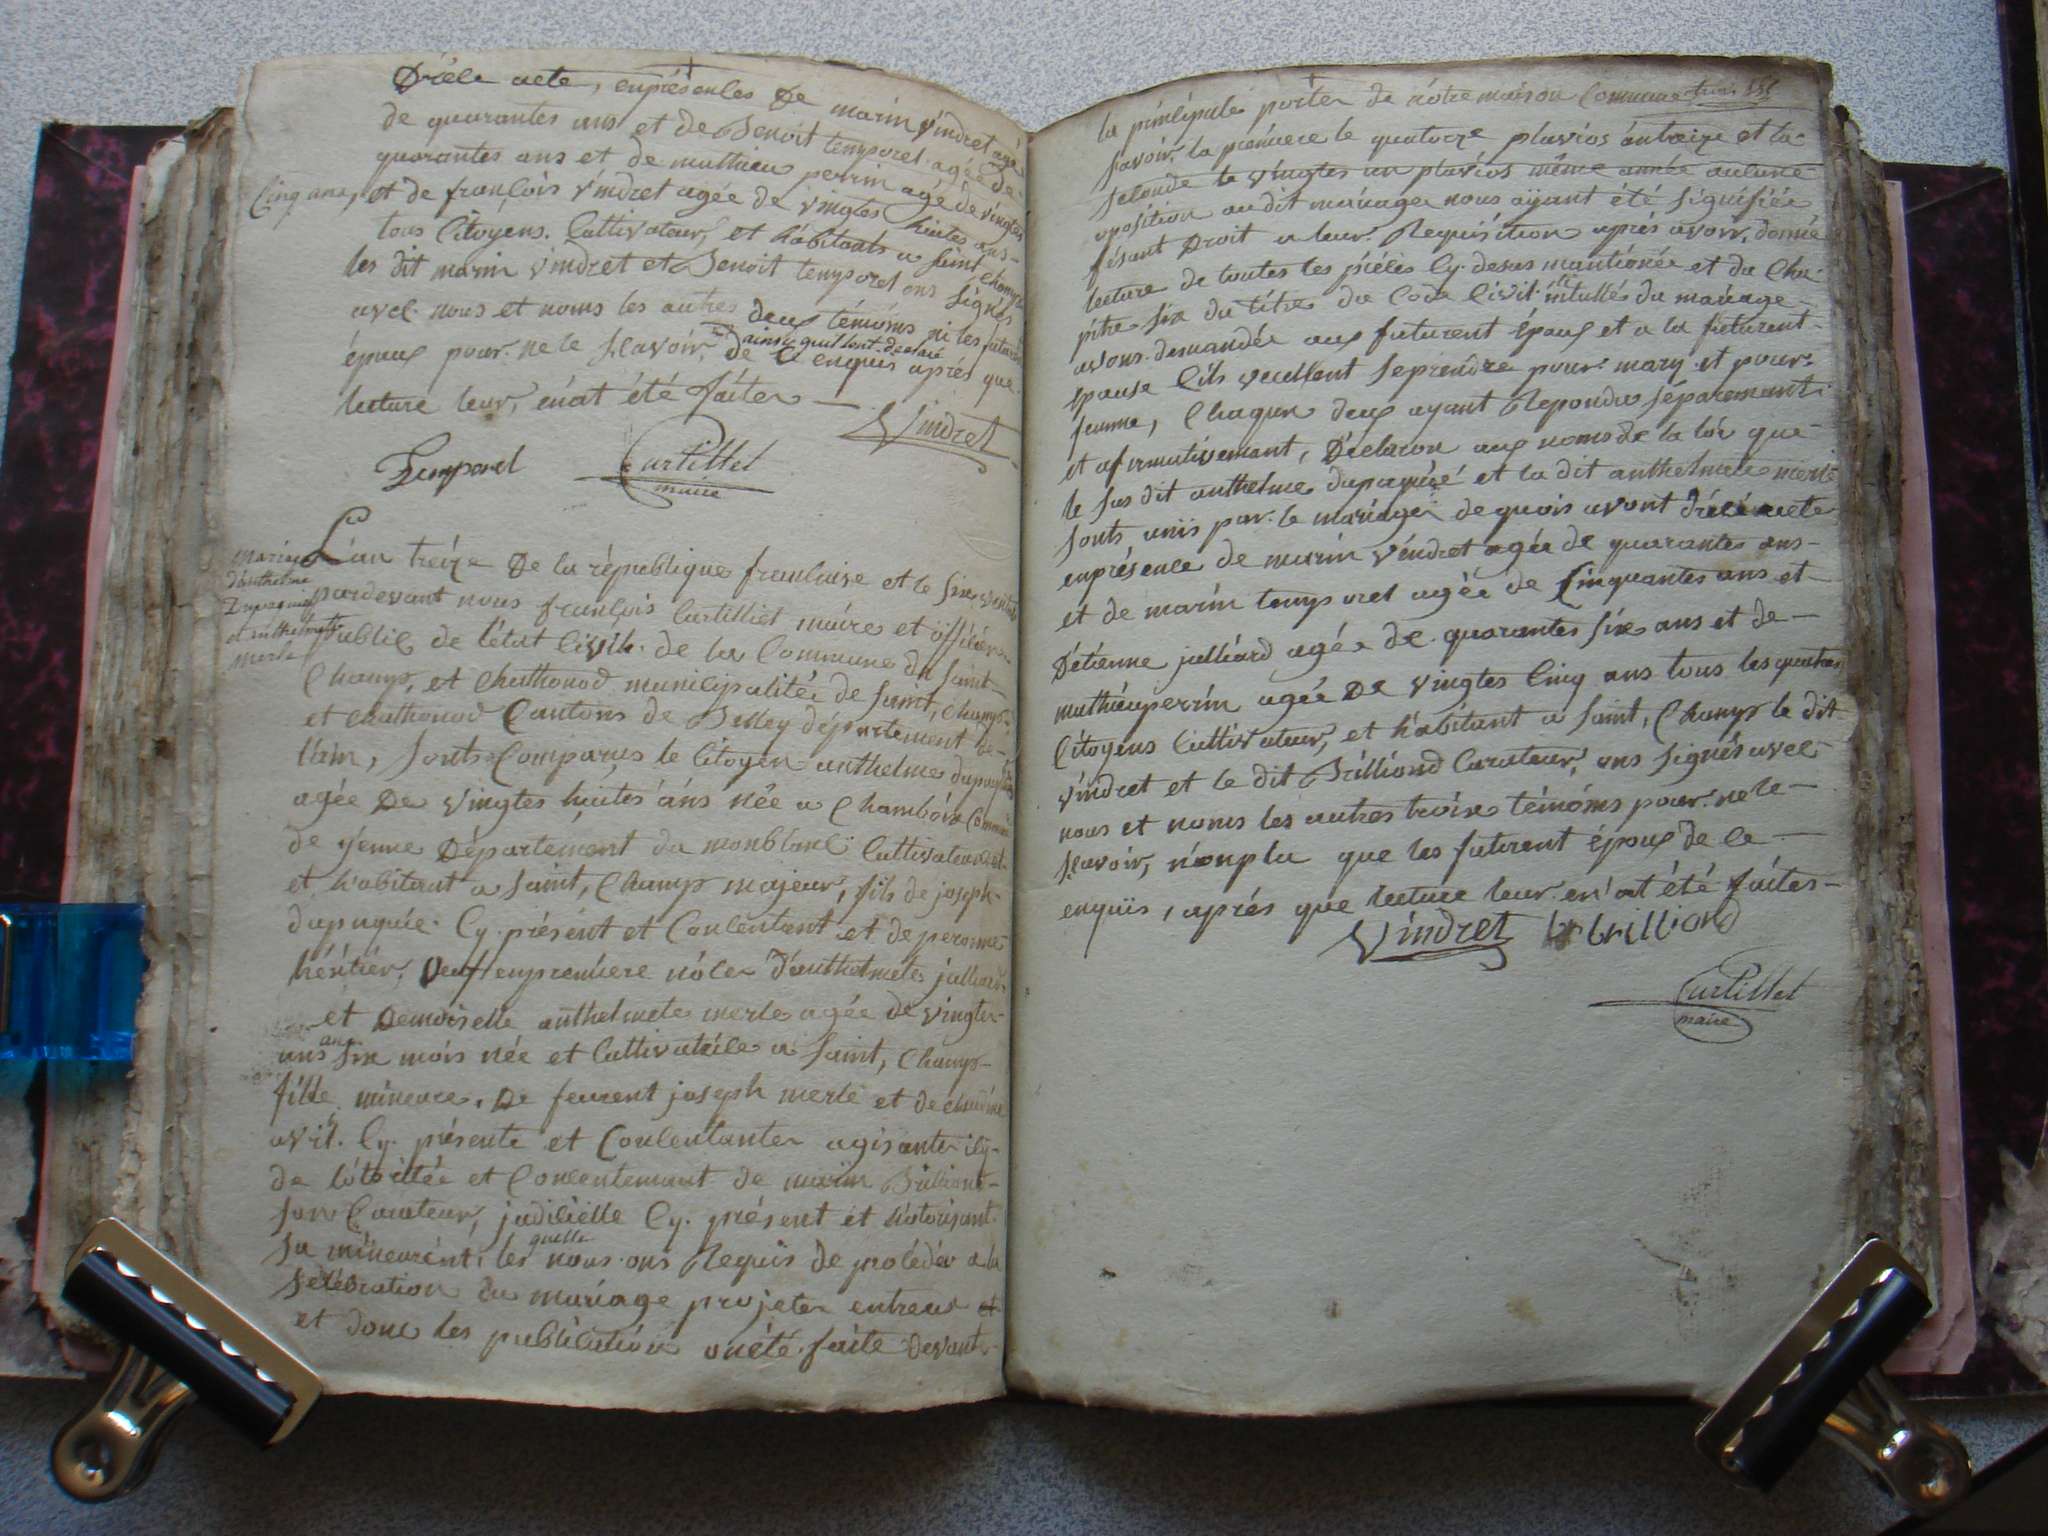 Dréce acte, enprésences De marin vindret agé
de quarantes ans et de Benoit temporel agée de
quarantes ans et de mathieu perrin agé de vingtes
Cinq ans, et de françois vindret agée de vingtes huites ans
tous Citoyens Cultivateur, et habitants a saint, champs
les dit marin vindret et Benoit temporel ons signés
avec nous et noms les autres deux témoins ni les futurs
époux pour ne le sçavoir, ainsy quil lont declaré
de ce enquis aprés que
lecture leur, enat été faites
Vindret
Temporel Curtillet
maire
Mariage
d'anthelme
Dupaquié
et anthelmete
merle
L'an treize De la république francaise et le six ventos
pardevant nous françois Curtilliet maire et officier
public de l'état civil de la Commune de saint
Champs, et Chathonod municipalitée de saint, Champs
et Chathonod Cantons de Belley département de
l'ain, sonts Comparus le Citoyen anthelmes dupaquié
agée De vingtes huites ans née a Chambois Commune
de yenne Département du monblanc Cultivateur et
et habitant a saint, Champs majeur, fils de joseph
dupaquié Cy présent et Concentant et de peronne
héritier, veuf enpremiere nôces d'anthelmete julliard
et Demoiselle anthelmete merle agée de vingtes
uns ans six mois née et Cultivatrice a saint, Champs
fille mineure, De feurent joseph merle et de claudine
avril Cy présente et Concentantes agisantes icy
de l'otoritée et Concentement de marin Brilliond
son Curateur, judicielle Cy présent et hotorisant
sa mineurent, les quelle nous ons Requis de procéder a la
selébration du mariage projeter entreux et
et donc les publication onété faite devant
la principale portes de nôtre maison Commune
savoir, la premiere le quatorze pluvios antreize et la
seconde le vingtes un pluvios même année aucune
oposition audit mariage nous ayant été signifiée
fésant Droit a leur Requisition aprés avoir, donné
lecture de toutes les piéces Cy desus mantionée et du Cha
pitre six du titre du Code Civil intullés du mariage
avons demandée aux futurent époux et a la futurent
épouse Cils veullent seprendre pour mary et pour
femme, Chaqun deux ayant Repondu séparemant
et afirmativemant, Déclaron aux noms de la loi que
le sus dit anthelme dupaquié et la dit anthelmete merle
sonts unis par le mariage de quois avont dréce acte
enprésence de marin vindret agée de quarantes ans
et de marin temporel agée de Cinquantes ans et
D'etienne julliard agée de quarantes six ans et de
mathieu perrin agée De vingtes Cinq ans tous les quatres
Citoyens Cultivateur, et habitant a saint, Champs le dit
vindret et le dit Brilliond Curateur, ons signés avec
nous et noms les autres troixe témoins pour ne le
sçavoir, nonplu que les futurent époux de ce
enquis, aprés que lecture leur en'at été faites
Vindret brilliond
Curtillet
maire